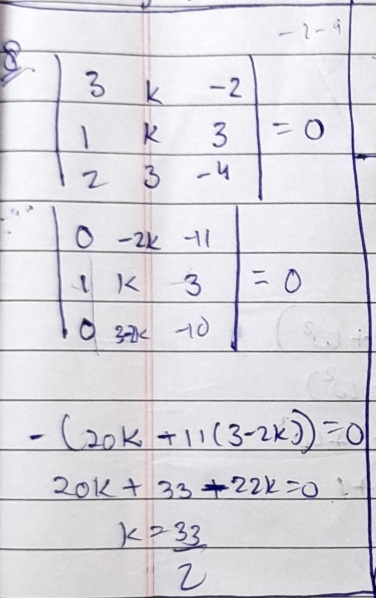 -2-9
Q.
| 3 k -2 |
| 1 k 3 | = 0
| 2 3 -4 |
| 0 -2k -11 |
| 1 k 3 | = 0
| 0 3-2k -10 |
-(20k + 11(3-2k)) = 0
20k + 33 - 22k = 0
k = 33
2